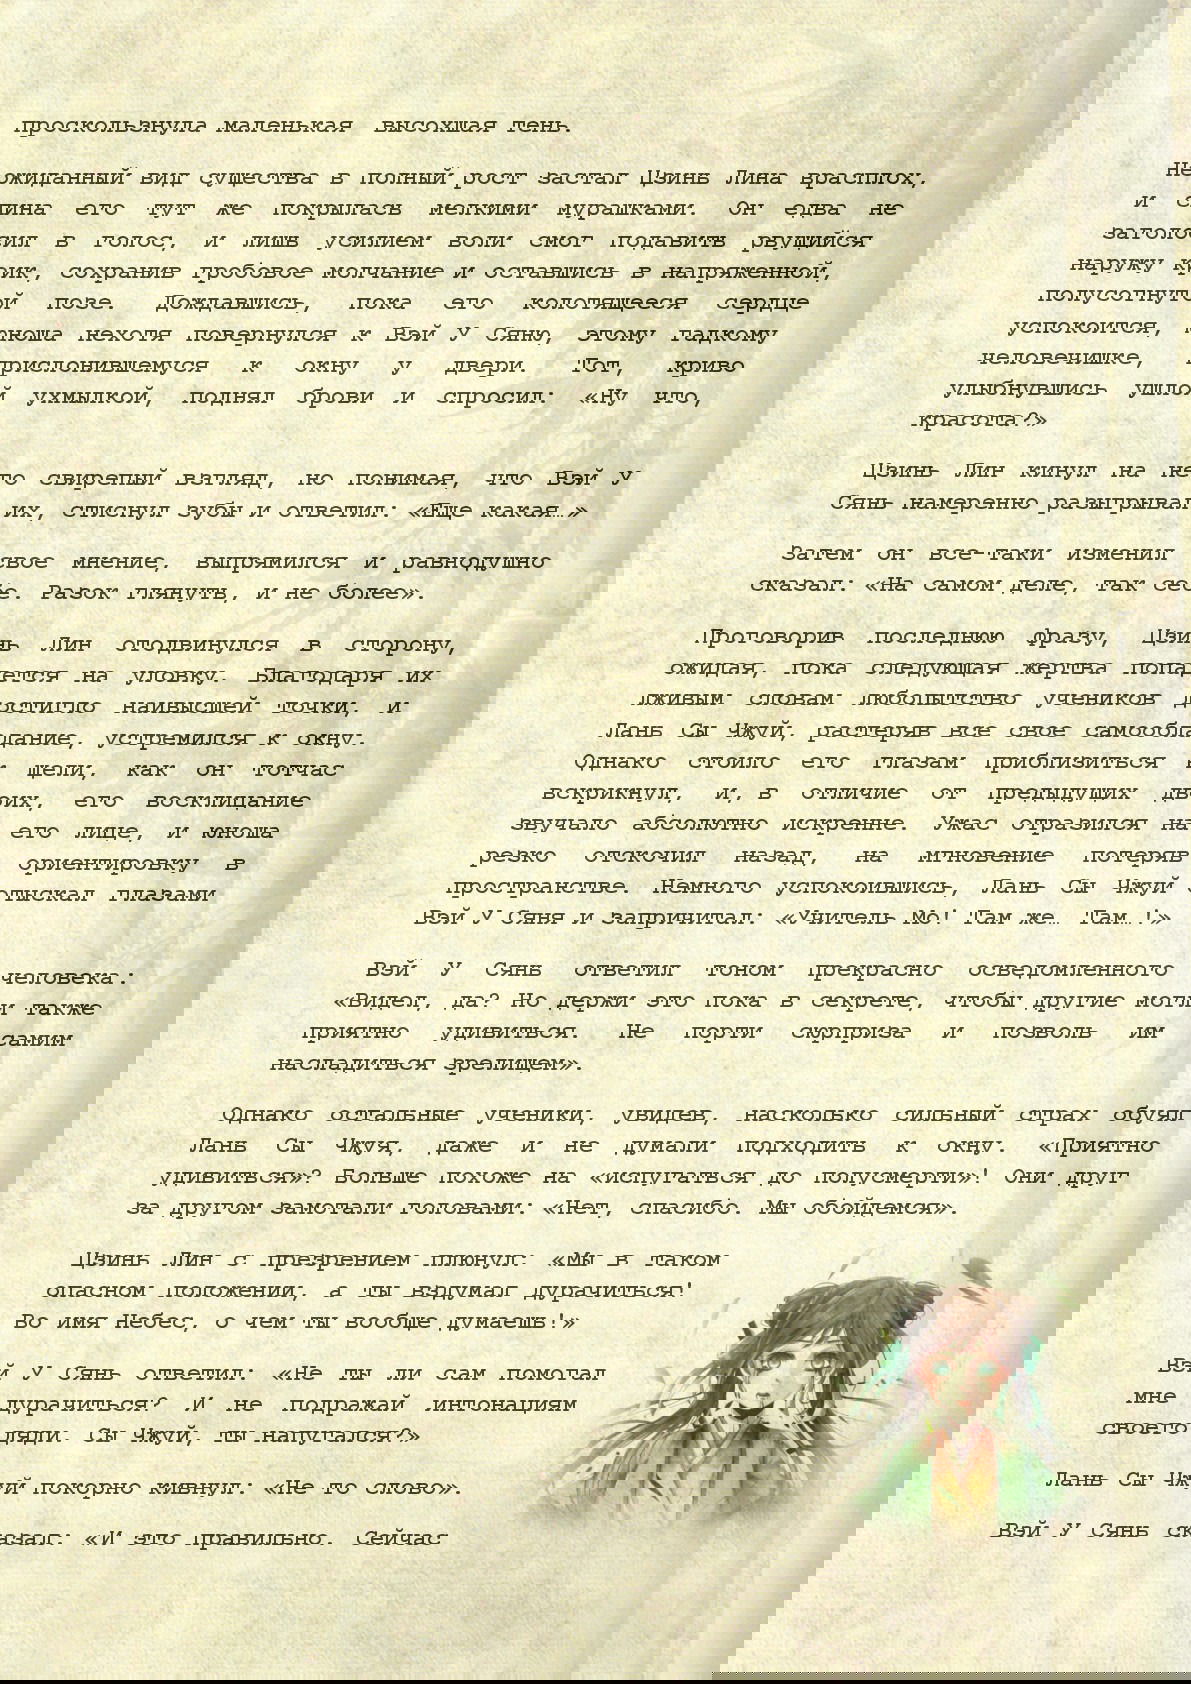 проскользнула маленькая  высохшая тень.
Неожиданный вид существа в полный рост застал Цзинь Лина врасплох,
и спина его тут же покрылась мелкими мурашками. Он едва не
заголосил в голос, и лишь усилием воли смог подавить рвущийся
наружу крик, сохранив гробовое молчание и оставшись в напряженной,
полусогнутой позе. Дождавшись, пока его колотящееся сердце
успокоится, юноша нехотя повернулся к Вэй У Сяню, этому гадкому
человечишке, прислонившемуся к окну у двери. Тот, криво
улыбнувшись ушлой ухмылкой, поднял брови и спросил: «Ну что,
красота?»
Цзинь Лин кинул на него свирепый взгляд, но понимая, что Вэй У
Сянь намеренно разыгрывал их, стиснул зубы и ответил: «Еще какая…»
Затем он все-таки изменил свое мнение, выпрямился и равнодушно
сказал: «На самом деле, так себе. Разок глянуть, и не более».
Проговорив последнюю фразу, Цзинь Лин отодвинулся в сторону,
ожидая, пока следующая жертва попадется на уловку. Благодаря их
лживым словам любопытство учеников достигло наивысшей точки, и
Лань Сы Чжуй, растеряв все свое самообладание, устремился к окну.
Однако стоило его глазам приблизиться к щели, как он тотчас
вскрикнул, и, в отличие от предыдущих двоих, его восклицание
звучало абсолютно искренне. Ужас отразился на его лице, и юноша
резко отскочил назад, на мгновение потеряв ориентировку в
пространстве. Немного успокоившись, Лань Сы Чжуй отыскал глазами
Вэй У Сяня и запричитал: «Учитель Мо! Там же… Там…!»
Вэй У Сянь ответил тоном прекрасно осведомленного человека:
«Видел, да? Но держи это пока в секрете, чтобы другие могли также
приятно удивиться. Не порти сюрприза и позволь им самим
насладиться зрелищем».
Однако остальные ученики, увидев, насколько сильный страх обуял
Лань Сы Чжуя, даже и не думали подходить к окну. «Приятно
удивиться»? Больше похоже на «испугаться до полусмерти»! Они друг
за другом замотали головами: «Нет, спасибо. Мы обойдемся».
Цзинь Лин с презрением плюнул: «Мы в таком
опасном положении, а ты вздумал дурачиться!
Во имя Небес, о чем ты вообще думаешь!»
Вэй У Сянь ответил: «Не ты ли сам помогал
мне дурачиться? И не подражай интонациям
своего дяди. Сы Чжуй, ты напугался?»
Лань Сы Чжуй покорно кивнул: «Не то слово».
Вэй У Сянь сказал: «И это правильно. Сейчас